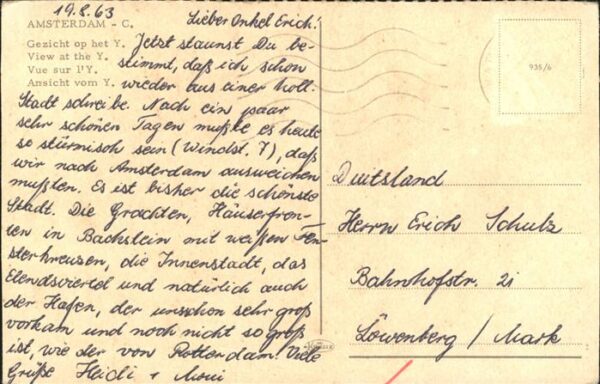 19.8.63
Lieber Onkel Erich!
AMSTERDAM - C.
Gezicht op het Y.
View at the Y.
Vue sur l'Y.
Ansicht vom Y.
Jetzt staunst Du be-
stimmt, daß ich schon
wieder aus einer holl.
Stadt schreibe. Nach ein paar
sehr schönen Tagen mußte es heute
so stürmisch sein (Windst. 7), daß
wir nach Amsterdam ausweichen
mußten. Es ist bisher die schönste
Stadt. Die Grachten, Häuserfron-
ten in Backstein mit weißen Fen-
sterkreuzen, die Innenstadt, das
Elendsviertel und natürlich auch
der Hafen, der uns schon sehr groß
vorkam und noch nicht so groß
ist, wie der von Rotterdam. Viele
Grüße Heidi +
935/6
Deutsland
Herrn Erich Schulz
Bahnhofstr. 21
Löwenberg / Mark